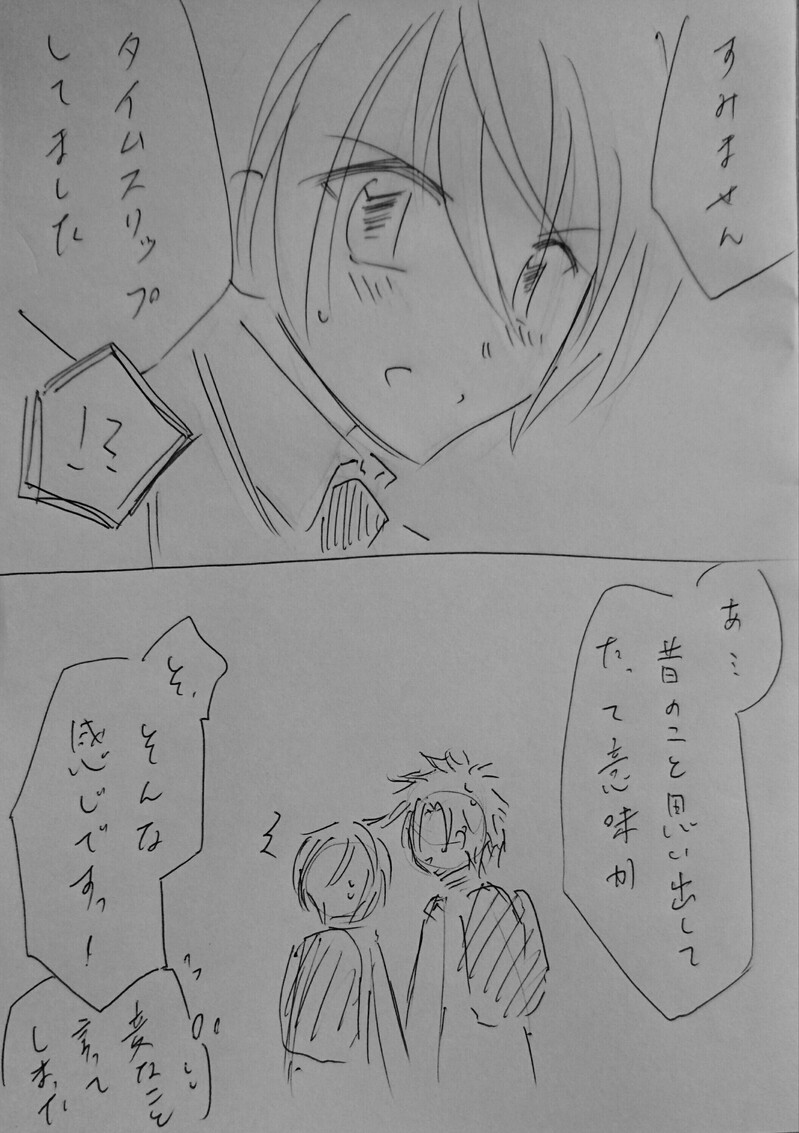 すみません
タイムスリップ
してました
!?
あ…
昔のこと思い出して
たって意味か
そ、
そんな
感じですっ!
変なこと
言って
しまった